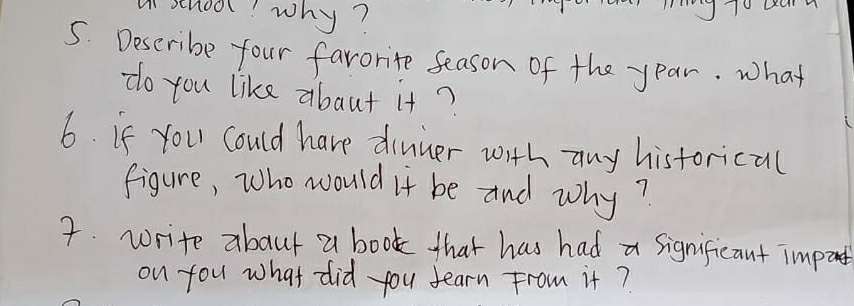 in school? why?
5. Describe your favorite season of the year. what
do you like abaut it?
6. if you could have dinner with any historical
figure, who would it be and why?
7. write abaut a book that has had a significant impact
on you what did you learn From it?